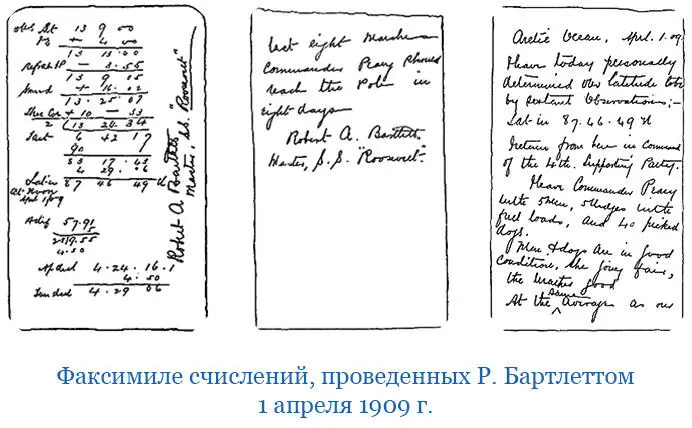 13 9 00
+ 4 00
13 13.00
− 3.55
13 9 05
+ 16.02
13.25.07
Cor + 10 − 33
2 13 24 34
6 42 17
90
83 17 43
4 29 06
Lat in 87 46 49 N
At Noon
April 1/09
57.91
4.50
Ap decl 4.24.16.1
4.50
True decl 4.29 06
Robert A. Bartlett
Master, S.S. "Roosevelt"
last eight Marches
Commander Peary should
reach the Pole in
eight days
Robert A. Bartlett
Master, S.S. "Roosevelt".
Arctic Ocean, Aprl. 1. 09.
I have today personally
determined our latitude
by sextant Observations;-
Lat in 87.46.49 N
I return from here in Command
of the 4th. Supporting Party.
I leave Commander Peary
with 5 Men, 5 Sledges with
full loads, and 40 picked
dogs.
Men & dogs are in good
Condition, the going fair,
the weather good
At the same Average as our
Факсимиле счислений, проведенных Р. Бартлеттом
1 апреля 1909 г.